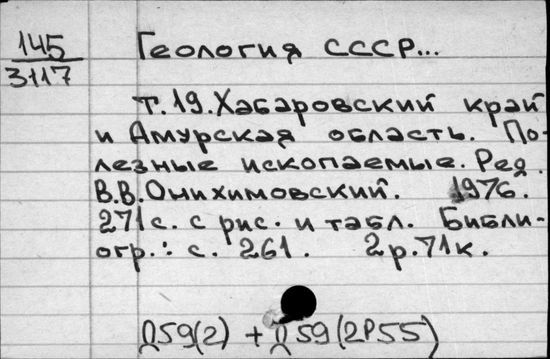 145
3117
Геология СССР...
т.19. Хабаровский край
и Амурская область. По-
лезные ископаемые. Ред.
В.В. Онихимовский. 1976.
271 с. с рис. и табл. Библи-
огр.: с. 261. 2 р. 71 к.
Д59(2) + Д59(2Р55)